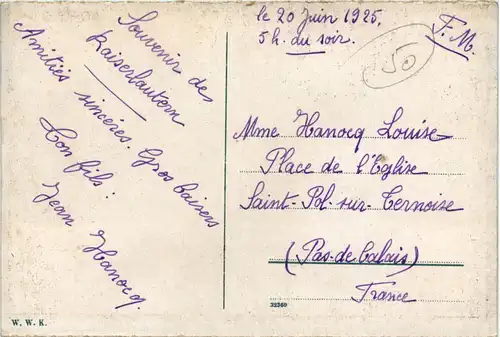 Souvenir de
Kaiserlautern
Amitiés
sincères. Gros baisers
Ton fils.
Jean Hanocq.
le 20 Juin 1925.
5 h. du soir.
F.M.
50
Mme Hanocq Louise
Place de l'Eglise
Saint-Pol-sur-Ternoise
(Pas-de-Calais)
France
32369
W. W. K.